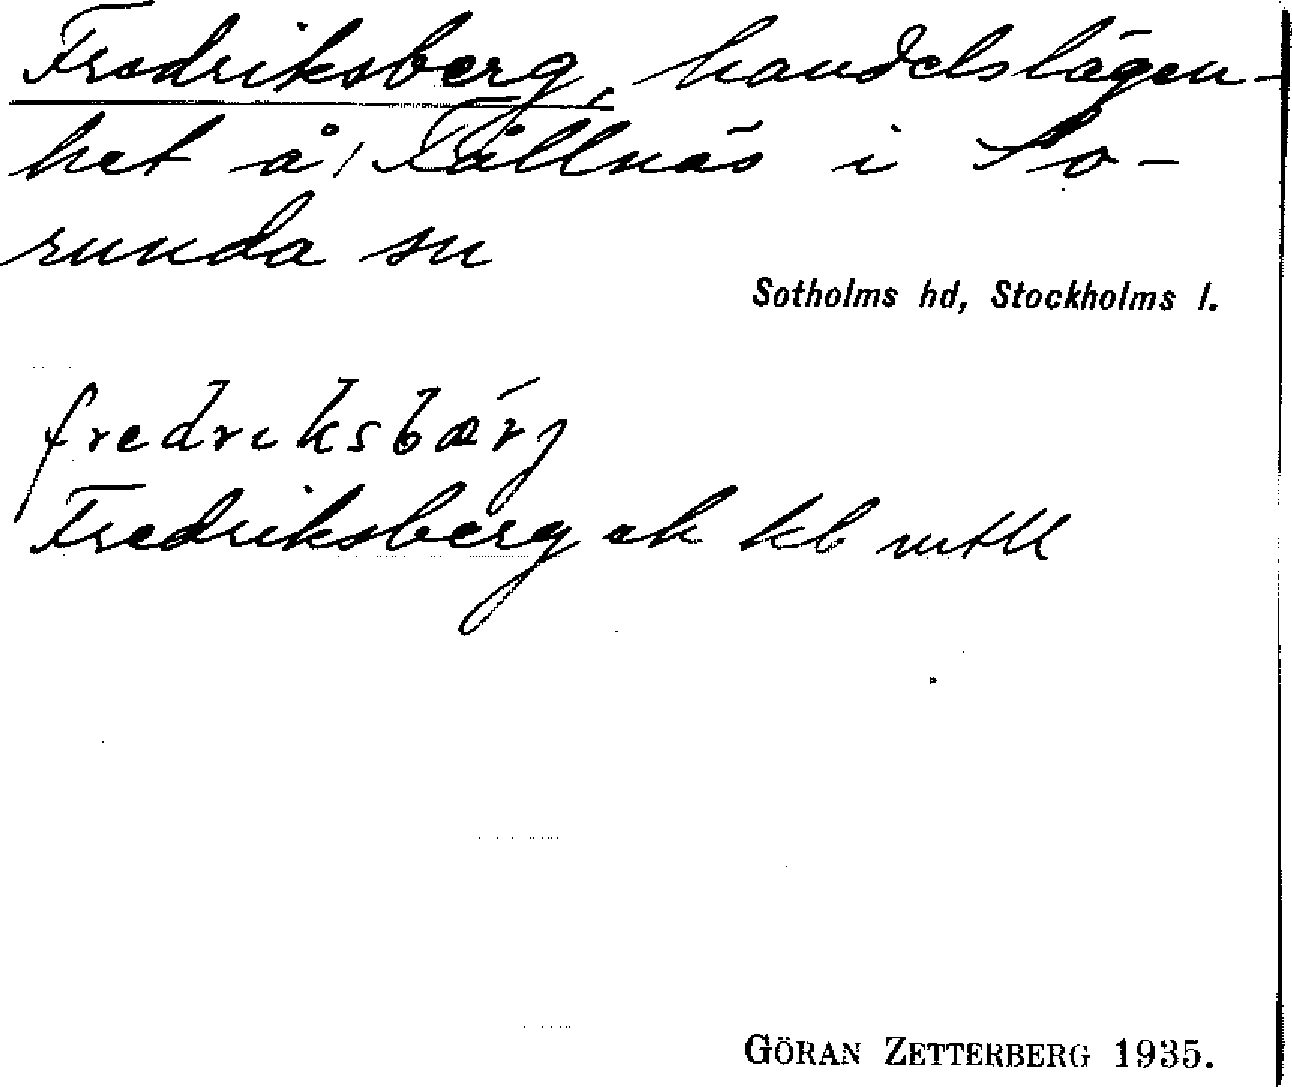 Fredriksberg, handelslägen-
het å Fållnäs i So-
runda sn
Sotholms hd, Stockholms l.
fredriksbærj
Fredriksberg ek kb mtll
GÖRAN ZETTERBERG 1935.